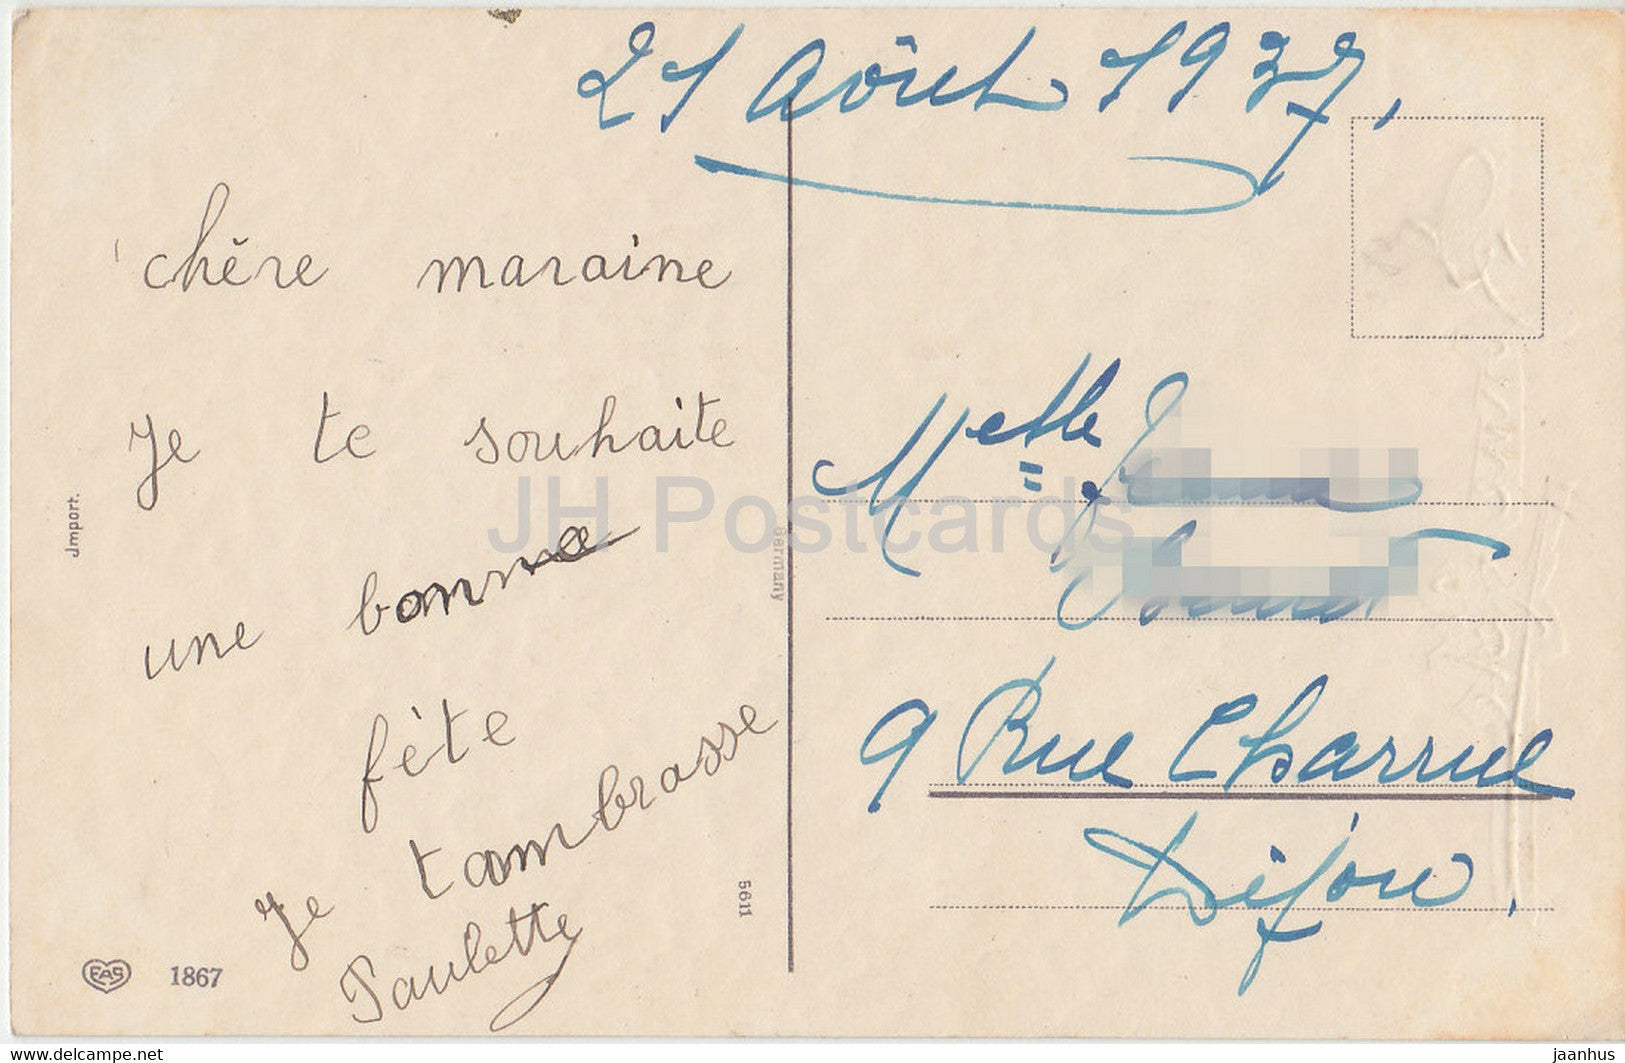 21 Aôut 1937,
chère maraine
Je te souhaite
une bonne
fête
Je tambrasse
Paulette
Melle
9 Rue Charrue
Dijon.
Jmport.
Germany
5611
EAS 1867
JH Postcards
www.delcampe.net
jaanhus